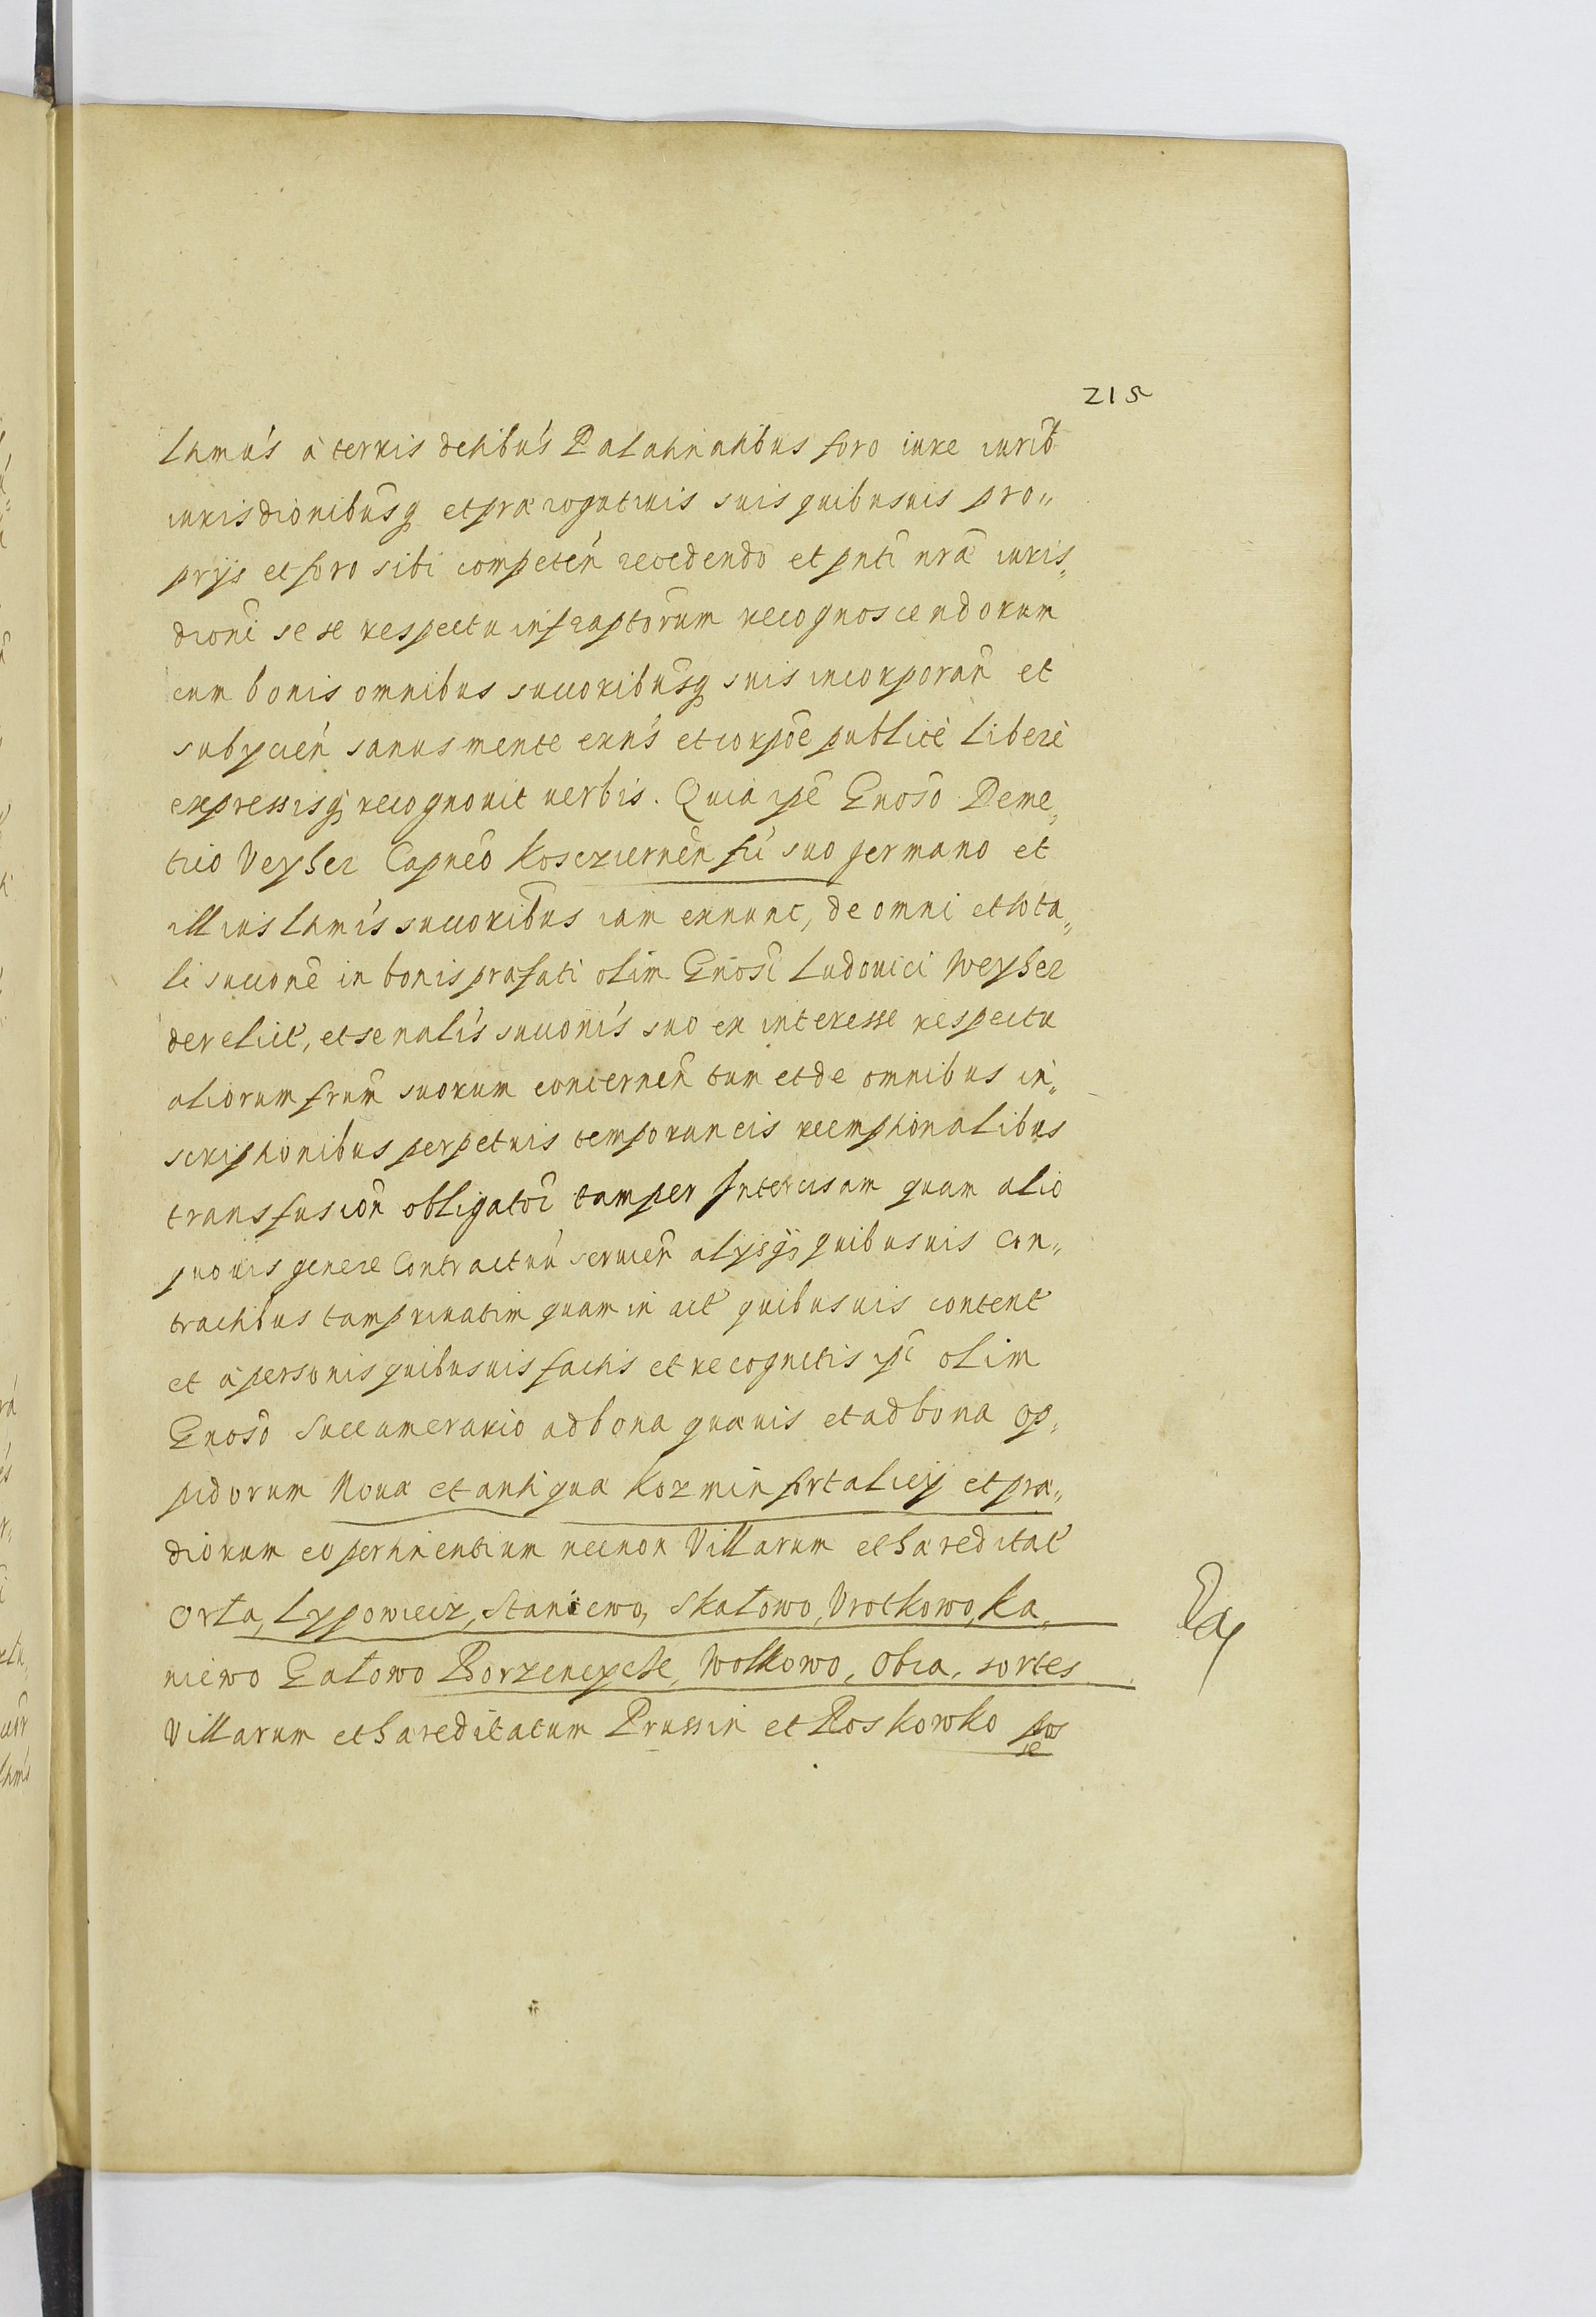 215
Lhmus à terris dehibus Palatinatibus foro iure iurib
iurisdionibusq et prærogatiuis suis quibusuis pro„
prijs et foro sibi competen recedendo et pnti nræ iuris„
dioni sese respectu infraptorum recognoscendorum
cum bonis omnibus succoribusq suis incorporan et
subycien sanus mente exns et corpoe publice libere
expressisq recognouit uerbis. Quia ipe Gnoso Deme„
trio Veyher Capneo Koscziernen fri suo germano et
illius Lhmis succoribus iam exnunc, de omni et tota„
li succone in bonis præfati olim Gnosi Ludouici Weyher
derelict, et se nalis succonis suo ex interesse respectu
aliorum frum suorum concernen tum et de omnibus in„
scriptionibus perpetuis temporaneis reemptionalibus
transfusion obligator tam per Intercisam quam alio
quouis genere Contractuu seruien alysq quibusuis Con„
tractibus tam priuatim quam in act quibusuis content
et à personis quibusuis factis et recognitis ipi olim
Gnoso Succamerario ad bona quæuis et ad bona op„
pidorum Noua et antiqua Kozmin fortalicij et præ„
diorum eo pertinentium necnon Villarum et hæreditat
Orla, Lypowiecz, Staniewo, Skalowo, Wrotkowo, Ka„
niewo Galowo Borzencyche, Wolkowo, Obra, sortes
Villarum et hæreditatum Prussin et Roskowko pos
se